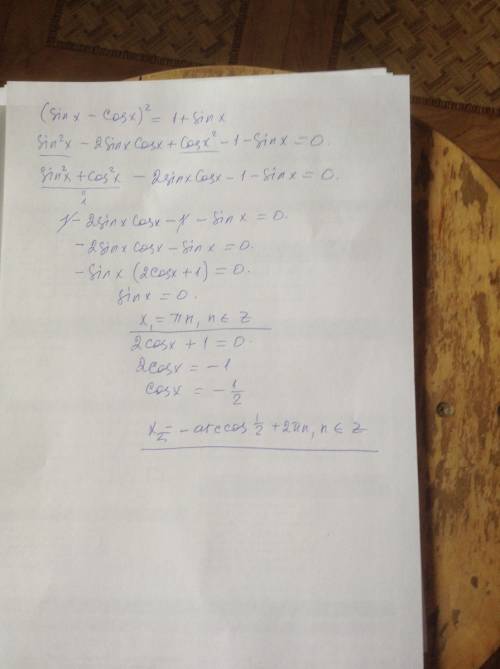 (sin x - cos x)² = 1 + sin x
sin²x - 2 sin x cos x + cos x² - 1 - sin x = 0.
sin²x + cos²x - 2 sin x cos x - 1 - sin x = 0.
"
1
1 - 2 sin x cos x - 1 - sin x = 0.
- 2 sin x cos x - sin x = 0.
- sin x (2 cos x + 1) = 0.
sin x = 0.
x₁ = πn, n ∈ Z
2 cos x + 1 = 0.
2 cos x = -1
cos x = - 1/2
x₂ = - arccos 1/2 + 2πn, n ∈ Z